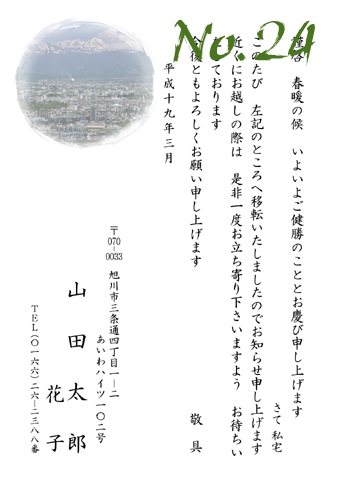 No.24
謹啓 春暖の候 いよいよご健勝のこととお慶び申し上げます
さて 私宅
このたび 左記のところへ移転いたしましたのでお知らせ申し上げます
近くにお越しの際は 是非一度お立ち寄り下さいますよう お待ちい
しております
今後ともよろしくお願い申し上げます
敬具
平成十九年三月
〒070-0033 旭川市三条通四丁目一−二
あいわハイツ一〇二号
山田太郎
花子
TEL(〇一六六)二六−二三八八番